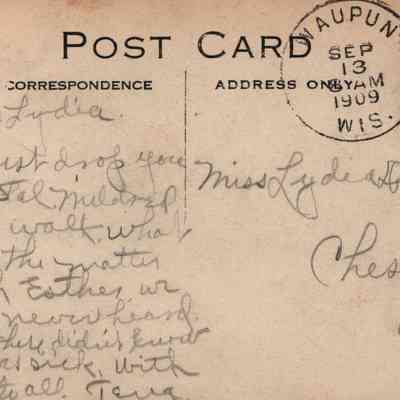 POST CARD
CORRESPONDENCE
ADDRESS ONLY
WAUPUN
SEP
13
8 AM
1909
WIS.
Lydia.
ust drop you
Mildred
walk, what
the matter
Esther, we
never heard
here didn't know
sick, with
all. Tena
Miss Lydia
Ches